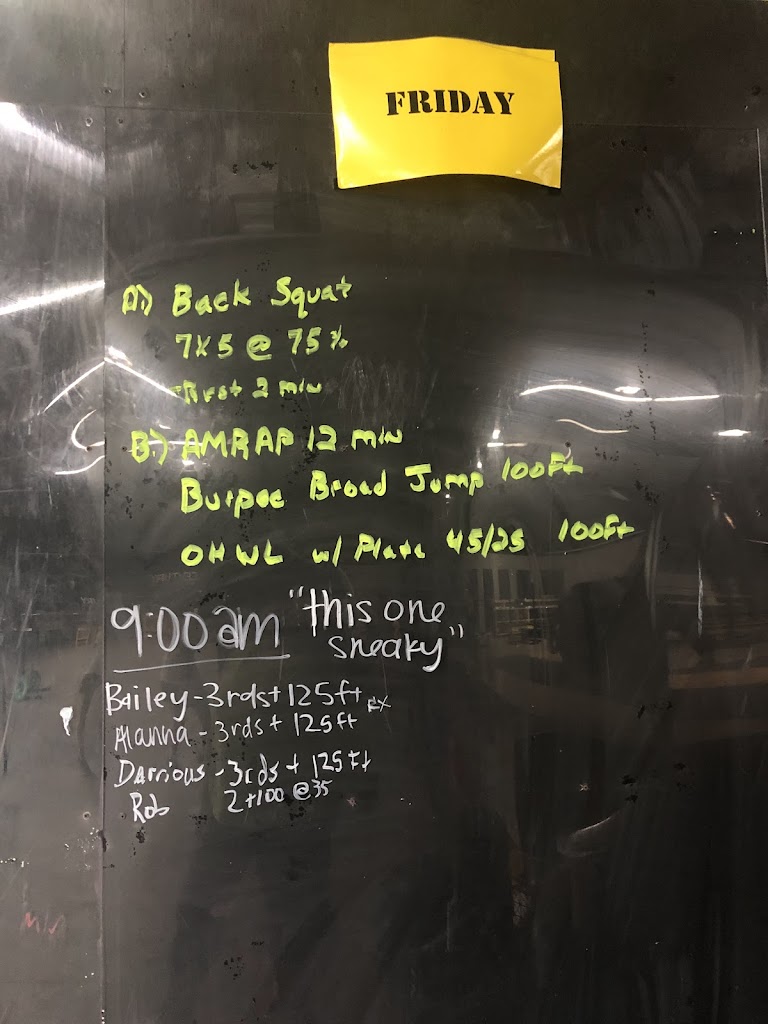 FRIDAY
A.) Back Squat
7x5 @ 75%
2 min
B.) AMRAP 12 min
Burpee Broad Jump 100ft
OHWL w/ Plate 45/25 100ft
9:00am "this one sneaky"
Bailey - 3rds + 125ft RX
Alanna - 3rds + 125ft
Darrious - 3rds + 125ft
Rob 2+100 @35